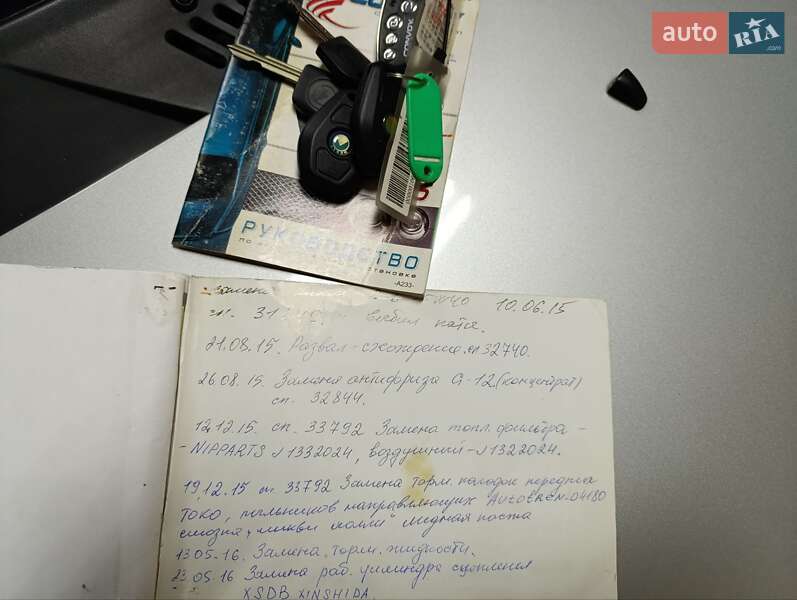 auto RIA .com
CONVOY
РУКОВОДСТВО
по установке
-A233-
Замена 10.06.15
сп.
21.08.15. Развал-схождение. сп 32740.
26.08.15. Замена антифриза G-12 (концентрат)
сп. 32844.
12.12.15. сп. 33792 Замена топл. фильтра -
- NIPPARTS J1332024, воздушний - J1322024.
19.12.15 сп. 33792 Замена торм. колодок передних
TOKO, пыльников направляющих AUTOFREN-D4180
смазка, "ликви молли" медная паста
13.05.16. Замена торм. жидкости.
23.05.16 Замена раб. цилиндра сцепления
XSDB XINSHIDA.